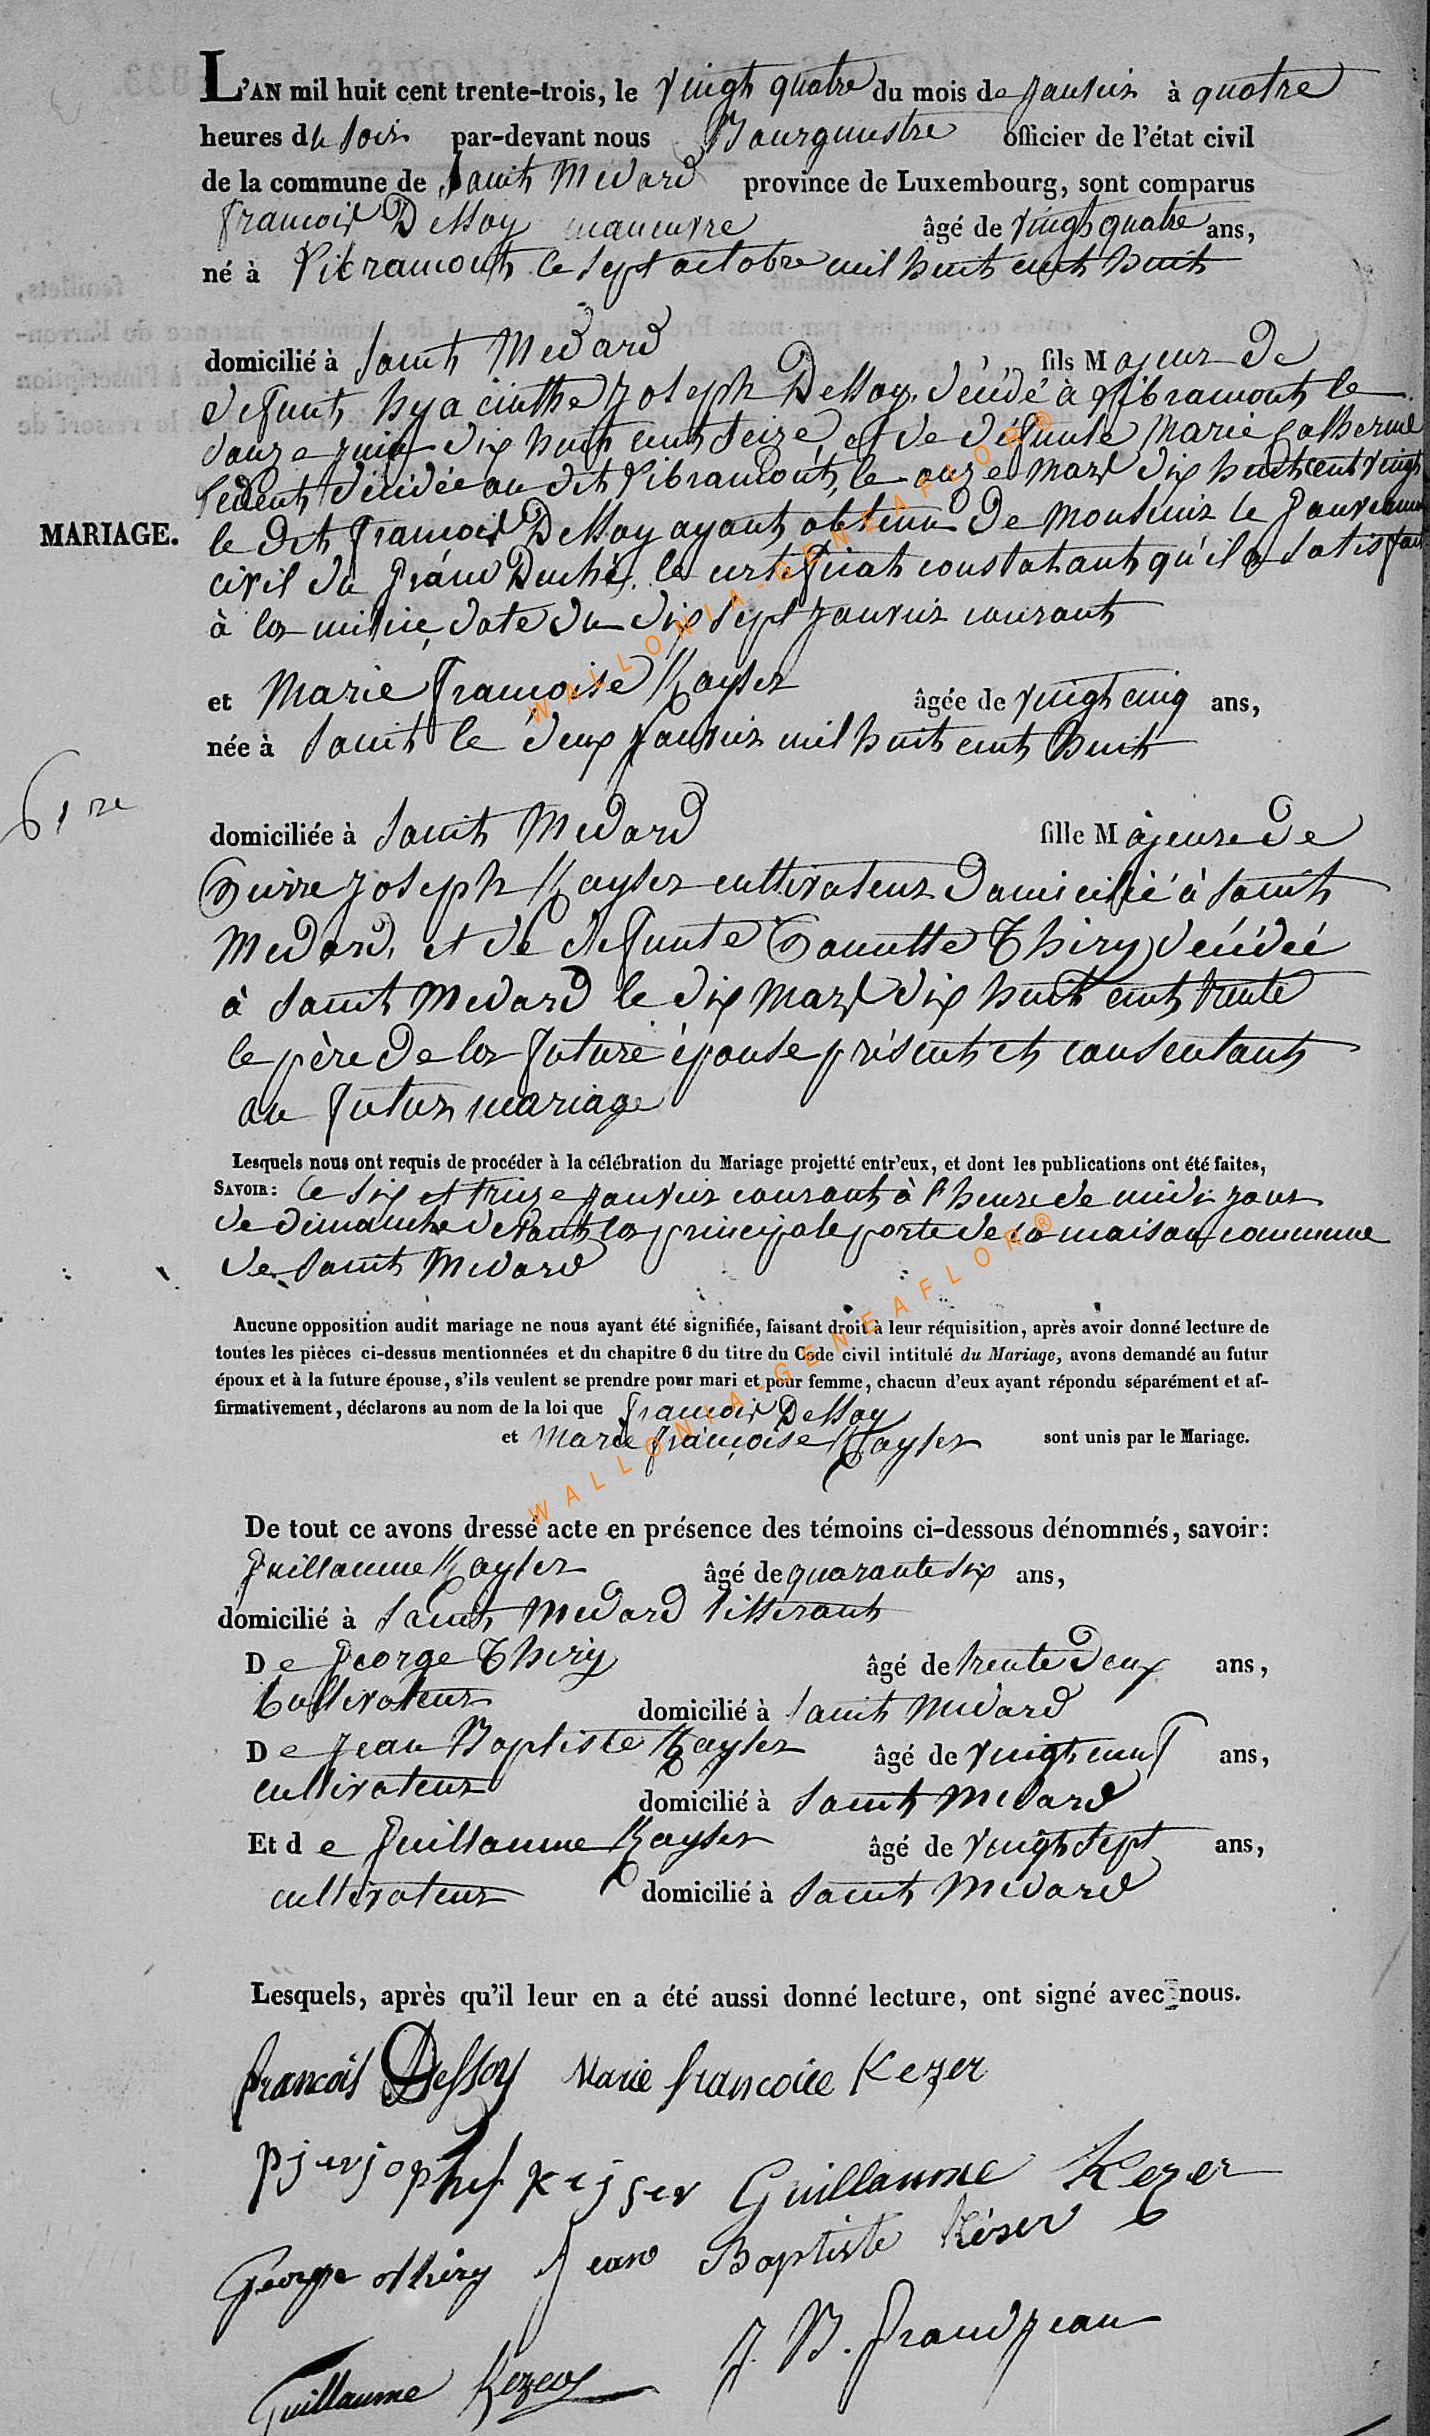 L'AN mil huit cent trente-trois, le vingt quatre du mois de janvier à quatre
heures du soir par-devant nous Bourgmestre officier de l'état civil
de la commune de Saint Medard province de Luxembourg, sont comparus
françois Dessoy manœuvre âgé de vingt quatre ans,
né à Libramont le sept octobre mil huit cent huit
domicilié à Saint Medard fils Majeur de
defunt hyacinthe joseph Dessoy, décédé à Libramont le
douze juin dix huit cent seize, et de défunte Marie Catherine
décédée au dit Libramont, le onze mars dix huit cent vingt
le dit françois Dessoy ayant obtenu de Monsieur le Gouverneur
MARIAGE.
civil du Grand Duché, le certificat constatant qu'il a satisfait
à la milice, date du dix sept janvier courant
et Marie françoise Kayser âgée de vingt cinq ans,
née à Saint le deux janvier mil huit cent huit
domiciliée à Saint Medard fille Majeure de
Pierre joseph Kayser cultivateur domicilié à Saint
Medard, et de defunte Thiry décédée
à Saint Medard le dix Mars dix huit cent trente
le père de la future épouse présent et consentant
au futur mariage
Lesquels nous ont requis de procéder à la célébration du Mariage projetté entr'eux, et dont les publications ont été faites,
SAVOIR: le six et treize janvier courant à l'heure de midi jour
de dimanche devant la principale porte de la maison commune
de Saint Medard
Aucune opposition audit mariage ne nous ayant été signifiée, faisant droit à leur réquisition, après avoir donné lecture de
toutes les pièces ci-dessus mentionnées et du chapitre 6 du titre du Code civil intitulé du Mariage, avons demandé au futur
époux et à la future épouse, s'ils veulent se prendre pour mari et pour femme, chacun d'eux ayant répondu séparément et af-
firmativement, déclarons au nom de la loi que françois Dessoy
et Marie françoise Kayser sont unis par le Mariage.
De tout ce avons dressé acte en présence des témoins ci-dessous dénommés, savoir:
Guillaume Kayser âgé de quarante six ans,
domicilié à Saint Medard
De George Thiry âgé de trente deux ans,
Cultivateur domicilié à Saint Medard
De Jean Baptiste Kayser âgé de vingt neuf ans,
cultivateur domicilié à Saint Medard
Et de Guillaume Kayser âgé de vingt sept ans,
cultivateur domicilié à Saint Medard
Lesquels, après qu'il leur en a été aussi donné lecture, ont signé avec nous.
françois Dessoy Marie françoise Kezer
Guillaume Kezer
George thiry Jean Baptiste Késer
J. B. Grandjean
Guillaume
WALLONIA-GENEAFLOR®
WALLONIA-GENEAFLOR®